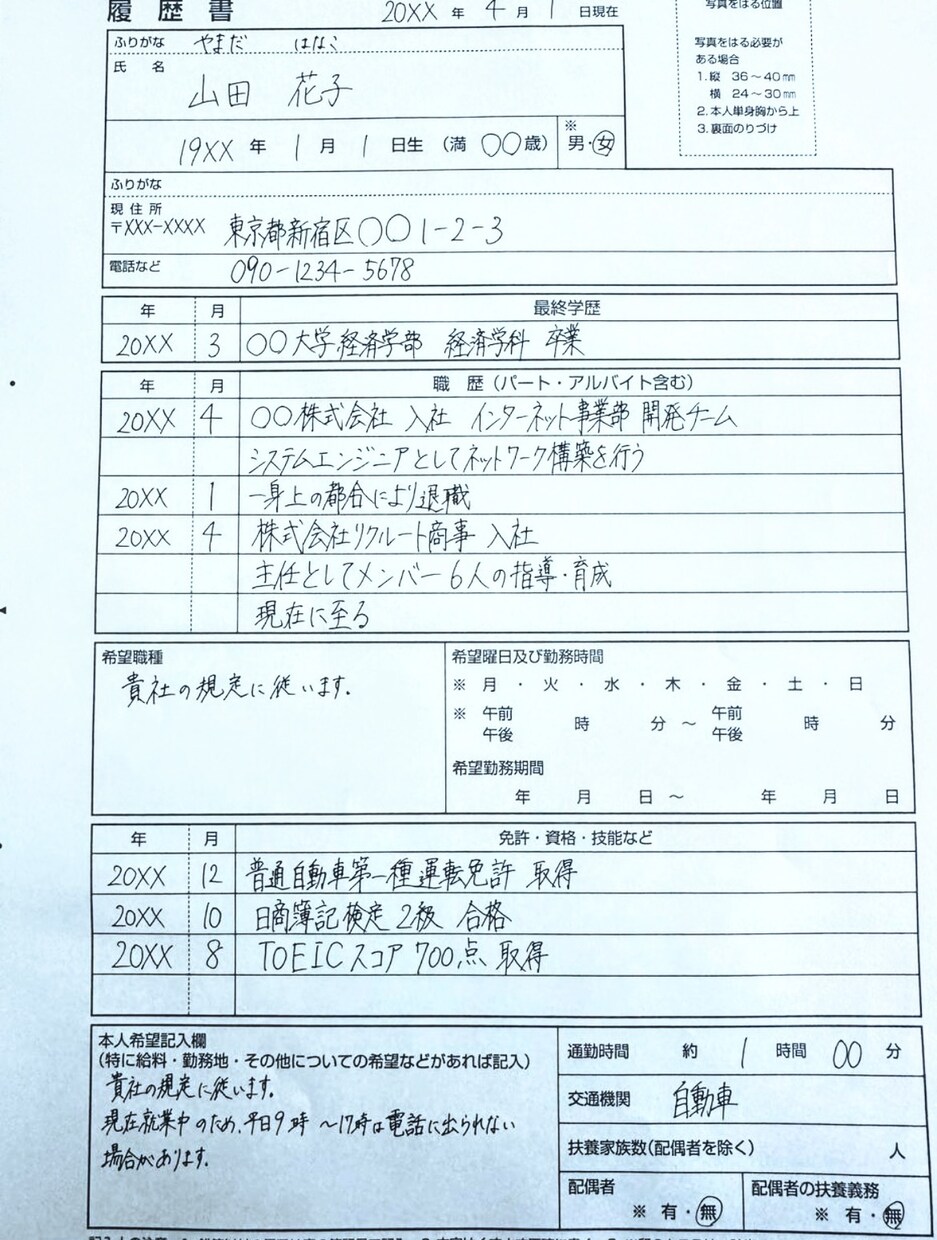 履歴書 20XX 年 4 月 1 日現在
写真をはる位置
写真をはる必要が
ある場合
1.縦 36～40㎜
横 24～30㎜
2.本人単身胸から上
3.裏面のりづけ
ふりがな やまだ はなこ
氏 名
山田 花子
19XX 年 1 月 1 日生 (満 〇〇 歳) ※ 男・女
ふりがな
現住所
〒XXX-XXXX 東京都新宿区〇〇1-2-3
電話など 090-1234-5678
年 月 最終学歴
20XX 3 〇〇大学経済学部 経済学科 卒業
年 月 職 歴 (パート・アルバイト含む)
20XX 4 〇〇株式会社 入社 インターネット事業部 開発チーム
システムエンジニアとしてネットワーク構築を行う
20XX 1 一身上の都合により退職
20XX 4 株式会社リクルート商事 入社
主任としてメンバー6人の指導・育成
現在に至る
希望職種
貴社の規定に従います.
希望曜日及び勤務時間
※ 月 ・ 火 ・ 水 ・ 木 ・ 金 ・ 土 ・ 日
※ 午前 時 分 ～ 午前 時 分
午後 午後
希望勤務期間
年 月 日 ～ 年 月 日
年 月 免許・資格・技能など
20XX 12 普通自動車第一種運転免許 取得
20XX 10 日商簿記検定 2級 合格
20XX 8 TOEICスコア 700点 取得
本人希望記入欄
(特に給料・勤務地・その他についての希望などがあれば記入)
貴社の規定に従います.
現在就業中のため、平日9時～17時は電話に出られない
場合があります.
通勤時間 約 1 時間 00 分
交通機関 自動車
扶養家族数(配偶者を除く) 人
配偶者 ※ 有・無
配偶者の扶養義務 ※ 有・無